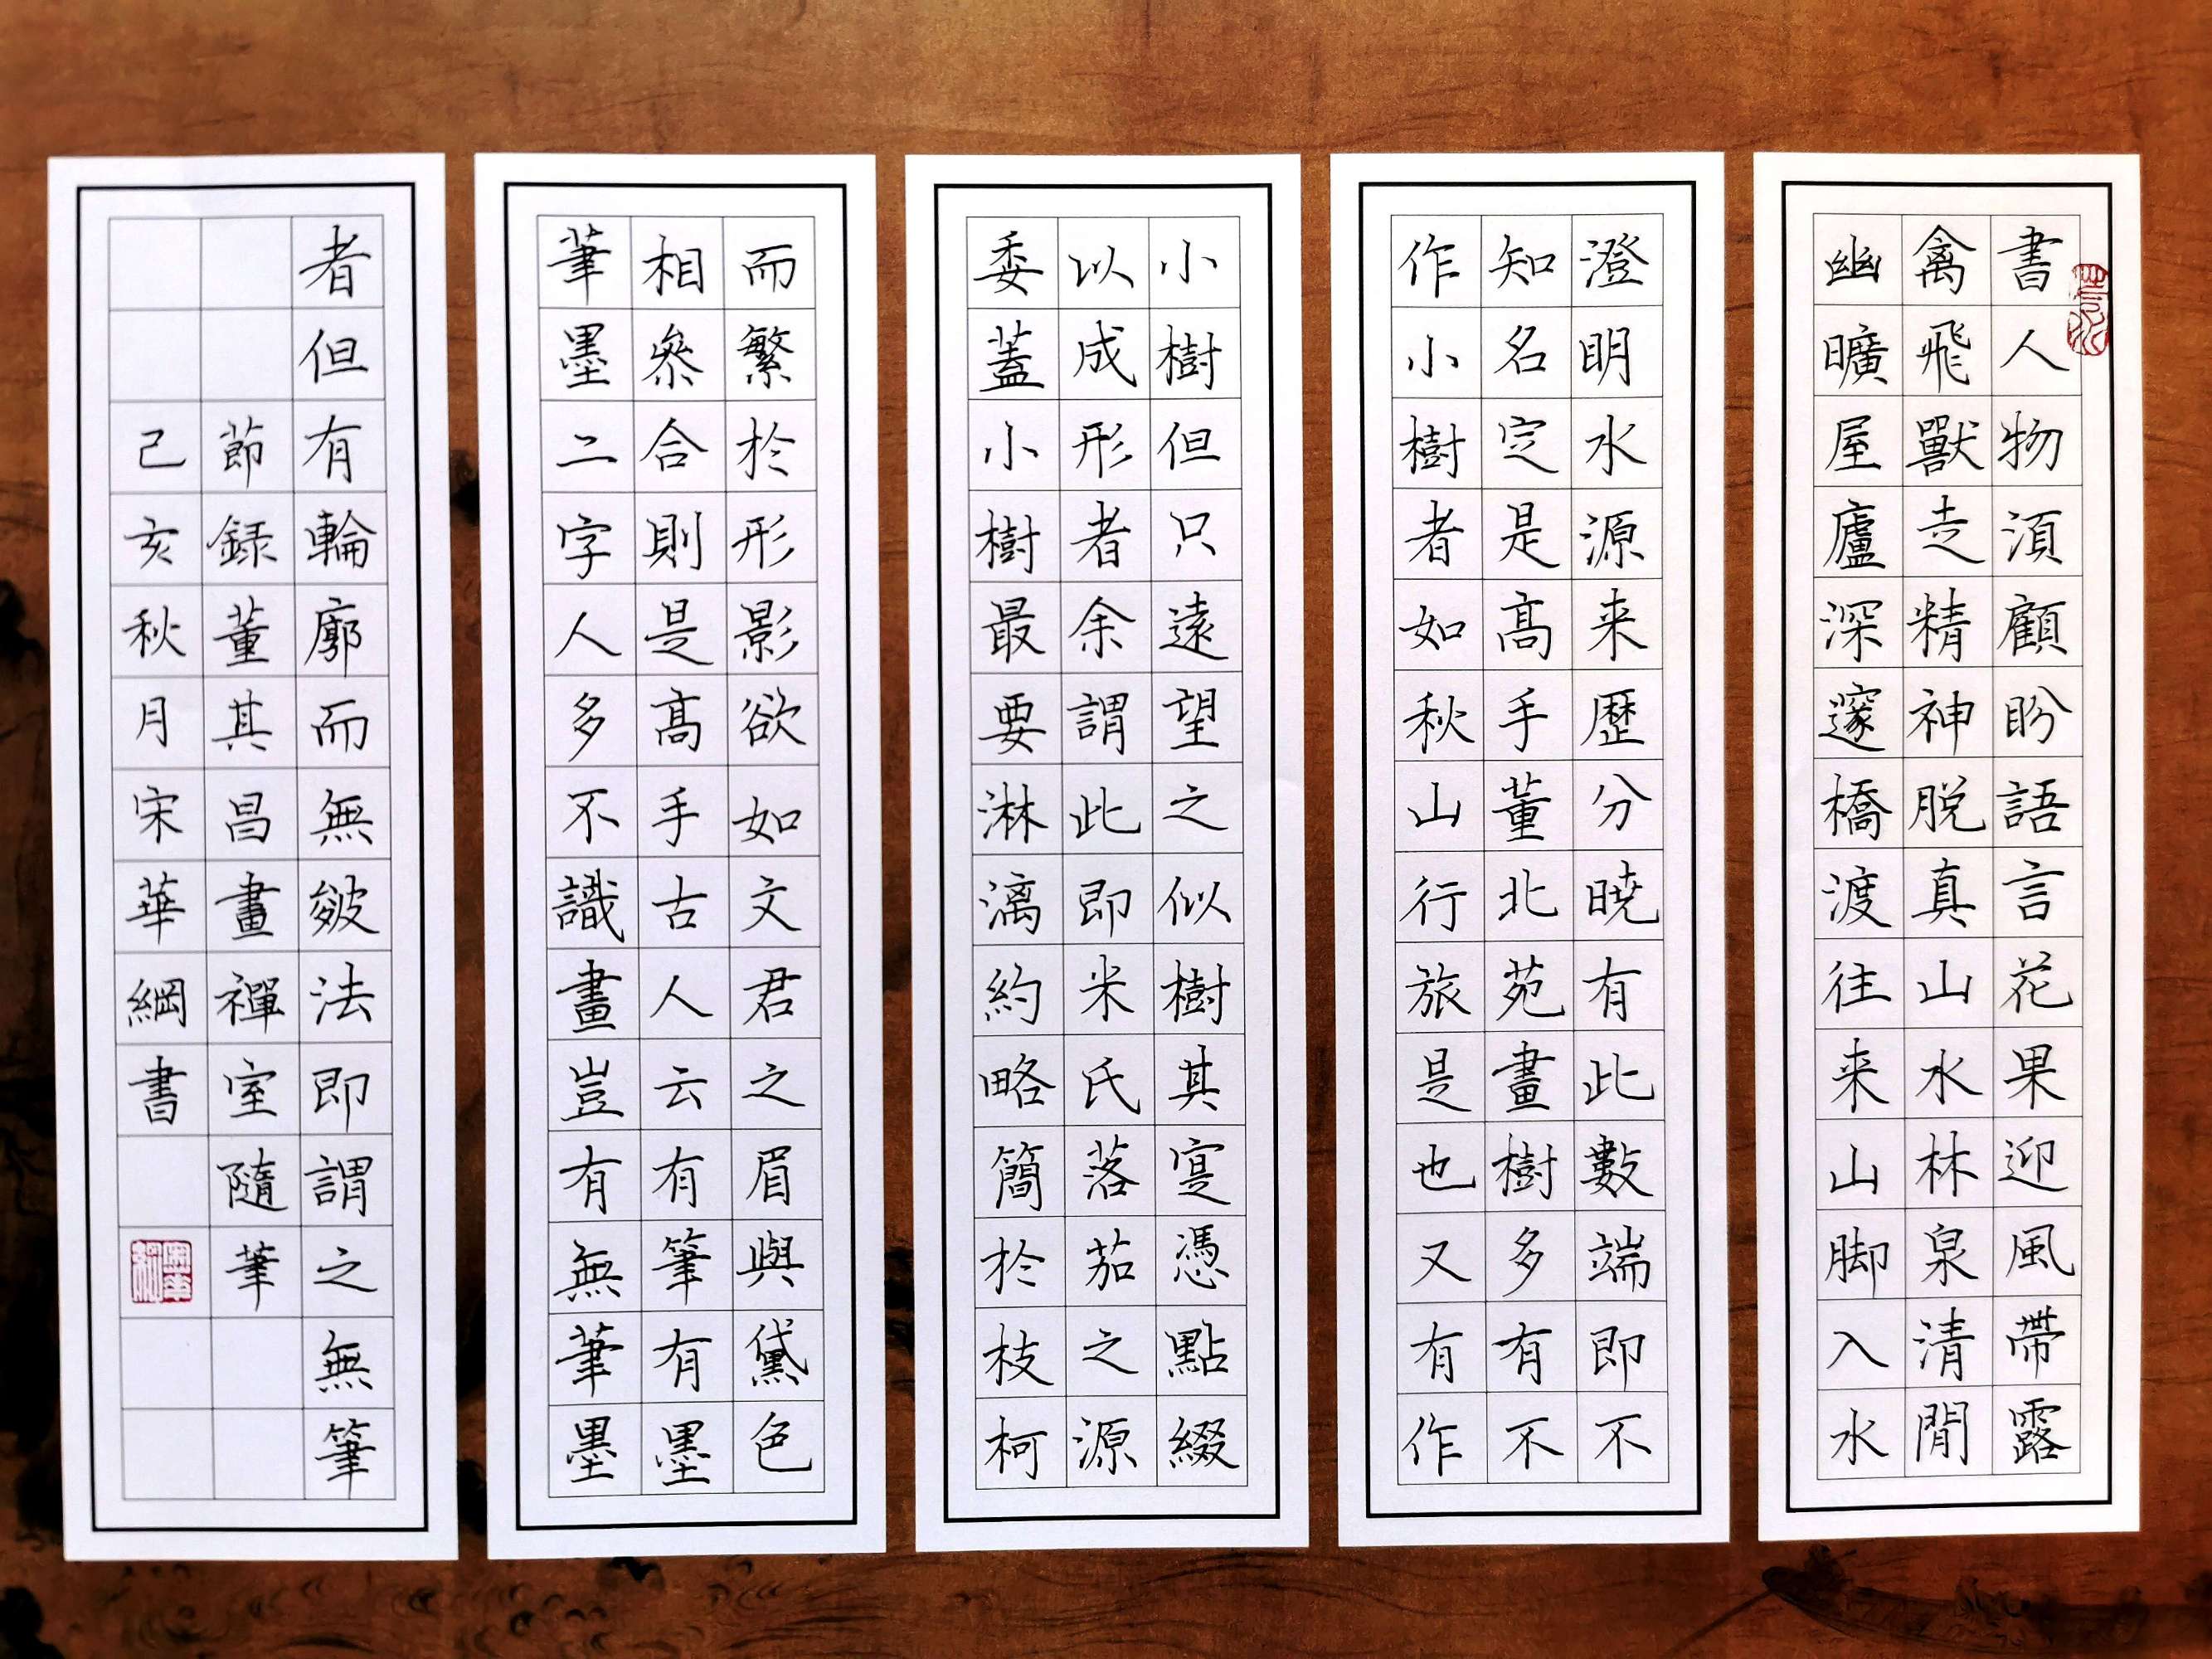 書人物湏顧盻語言花果迎風帶露
禽飛獸走精神脫真山水林泉清閒
幽曠屋廬深邃橋渡往来山脚入水
澄明水源来歷分曉有此數端即不
知名定是高手董北苑畫樹多有不
作小樹者如秋山行旅是也又有作
小樹但只遠望之似樹其寔憑點綴
以成形者余謂此即米氏落茄之源
委蓋小樹最要淋漓約略簡於枝柯
而繁於形影欲如文君之眉與黛色
相叅合則是高手古人云有筆有墨
筆墨二字人多不識畫豈有無筆墨
者但有輪廓而無皴法即謂之無筆
節録董其昌畫禪室隨筆
己亥秋月宋華綱書